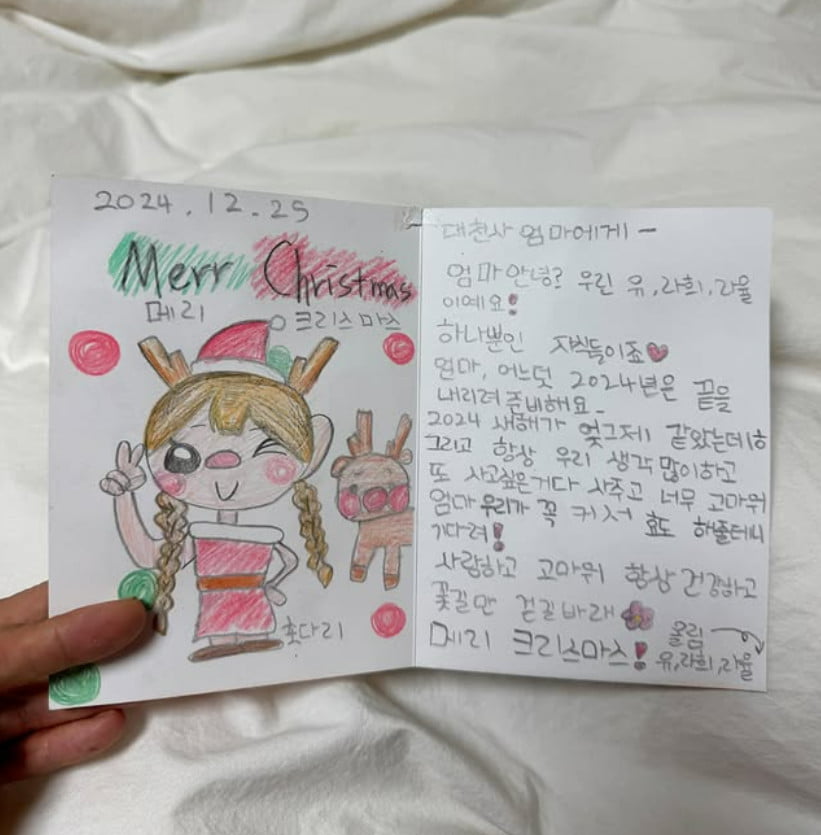 2024.12.25
Merr Christmas
메리 크리스마스
홋다리
대천사 엄마에게 -
엄마 안녕? 우린 유,라희,라율
이예요!
하나뿐인 자식들이죠
엄마, 어느덧 2024년은 끝을
내리려 준비해요.
2024 새해가 엊그제 같았는데ㅎ
그리고 항상 우리 생각 많이하고
또 사고싶은거 다 사주고 너무 고마워
엄마 우리가 꼭 커서 효도 해줄테니
기다려!
사랑하고 고마워 항상 건강하고
꽃길만 걷길 바래
메리 크리스마스! 올림
유,라희,라율